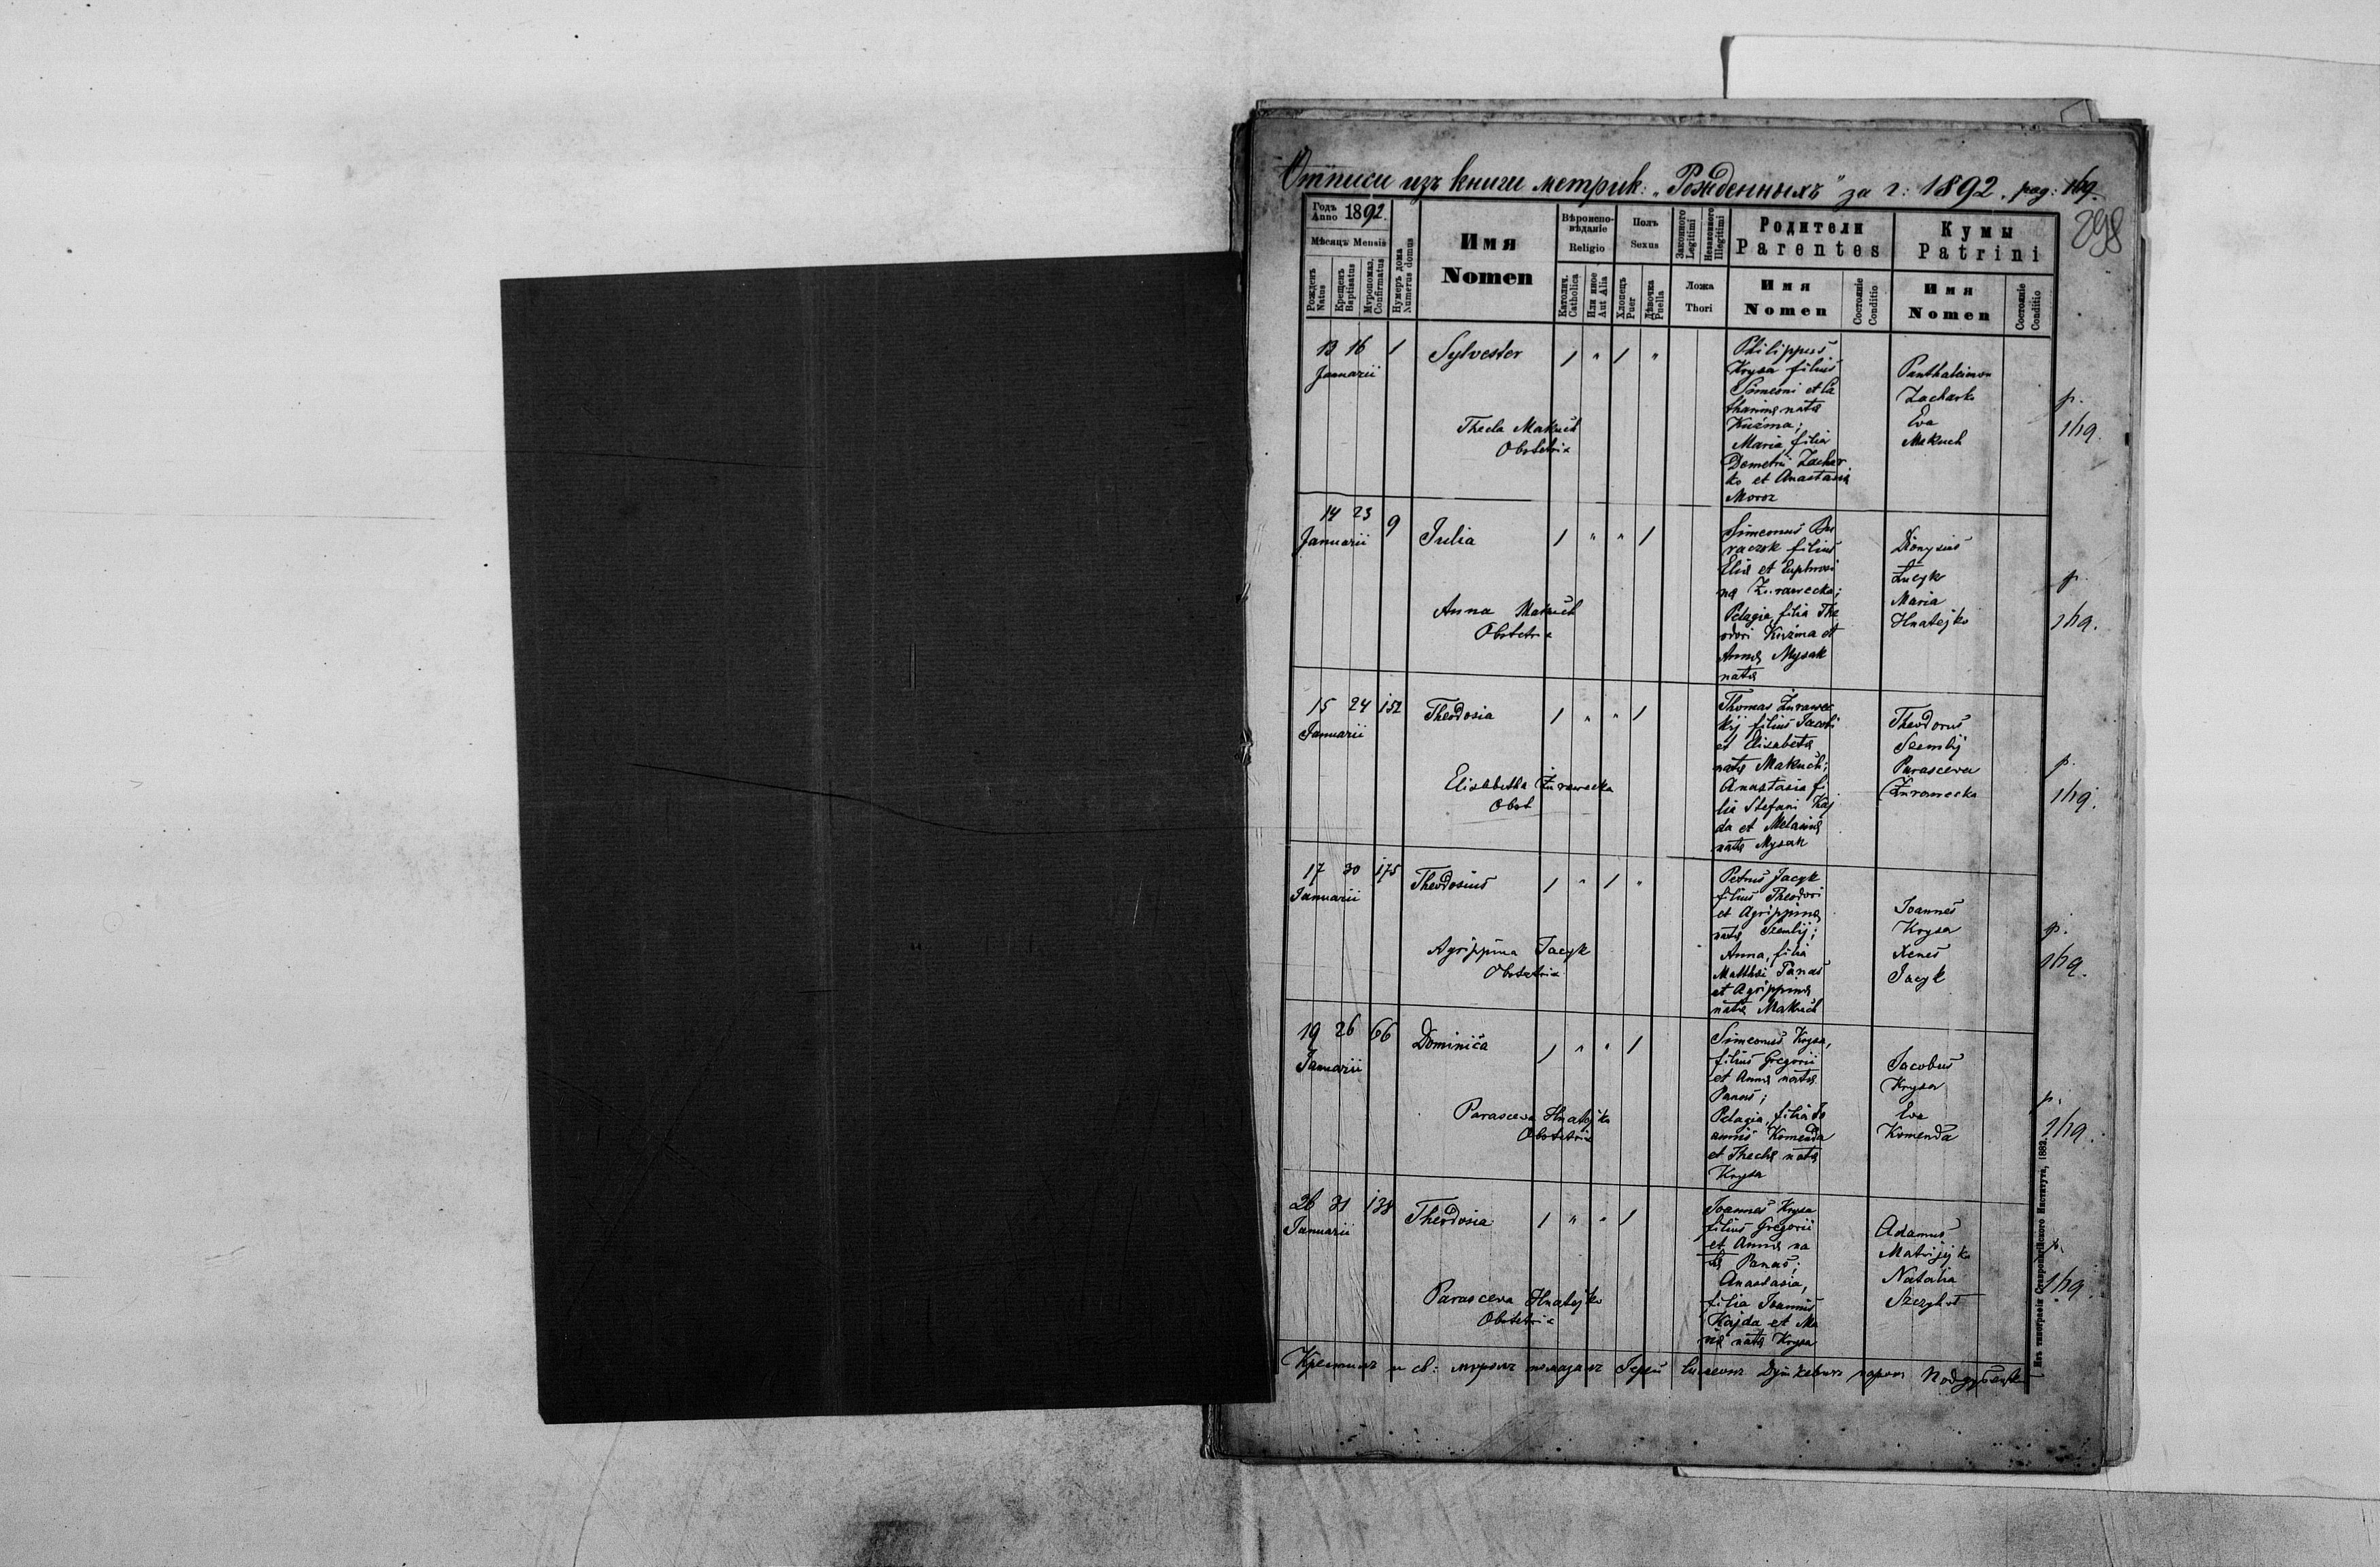 Отписи изъ книги метрик: „Рожденныхъ" за г: 1892. pag: 1h9.
298
Годъ Anno 1892.
Мѣсяцъ Mensis
Рожденъ Natus
Крещенъ Baptisatus
Мѵропомаз. Confirmatus
Нумеръ дома Numerus domus
Имя
Nomen
Вѣроиспо-
вѣданіе
Religio
Католич. Catholica
Или иное Aut Alia
Полъ
Sexus
Хлопецъ Puer
Дѣвочка Puella
Законного Legitimi
Незаконного Illegitimi
Ложа
Thori
Родители
Parentes
Имя
Nomen
Состояніе Conditio
Кумы
Patrini
Имя
Nomen
Состояніе Conditio
13 16 1 Sylvester 1 " 1 "
Januarii
Thecla Makuch
Obstetrix
Philippus
Krysa filius
Simeoni et Ca
tharinæ natæ
Kuzma;
Maria, filia
Demetrii Zachar
ko et Anastasiæ
Moroz
Panthaleimon
Zacharko
Eva
Makuch
p.
1h9.
14 23 9 Julia 1 " " 1
Januarii
Anna Makuch
Obstetrix
Simeonus
raczok filius
Eliæ et Euphrosi
næ Żurawecka;
Pelagia, filia The
odori Kuzma et
Annæ Mysak
natæ
Dionysius
Maria
Hnatejko
p.
1h9.
15 24 152 Theodosia 1 " " 1
Januarii
Elisabetha Żurawecka
Obst
Thomas Żurawec
kij filius Jacobi
et Elisabetæ
natæ Makuch;
Anastasia fi
lia Stefani Kaj
da et Melaniæ
natæ Mysak
Theodorus
Szemlij
Parasceva
Żurawecka
p.
1h9.
17 30 175 Theodosius 1 " 1 "
Januarii
Agrippina Jacyk
Obstetrix
Petrus Jacyk
filius Theodori
et Agrippinæ
natæ Szemlij;
Anna, filia
Matthæi Panas
et Agrippinæ
natæ Makuch
Joannes
Krysa
Xenes
Jacyk
p.
1h9.
19 26 66 Dominica 1 " " 1
Januarii
Parasceva Hnatejko
Obstetrix
Simeonus Krysa,
filius Gregorii
et Annæ natæ
Panas;
Pelagia, filia Jo
annis Komenda
et Theclæ natæ
Krysa
Jacobus
Krysa
Eva
Komenda
p.
1h9.
26 31 138 Theodosia 1 " " 1
Januarii
Parasceva Hnatejko
Obstetrix
Joannes Krysa
filius Gregorii
et Annæ na
tæ Panas;
Anastasia,
filia Joannis
Kajda et Ma
riæ natæ Krysa
Adamus
Matvijejko
Natalia
p.
1h9.
Крестилъ и св: мѵромъ помазалъ Іерей Симеонъ
Изъ типографіи Ставропигійского Института, 1882.